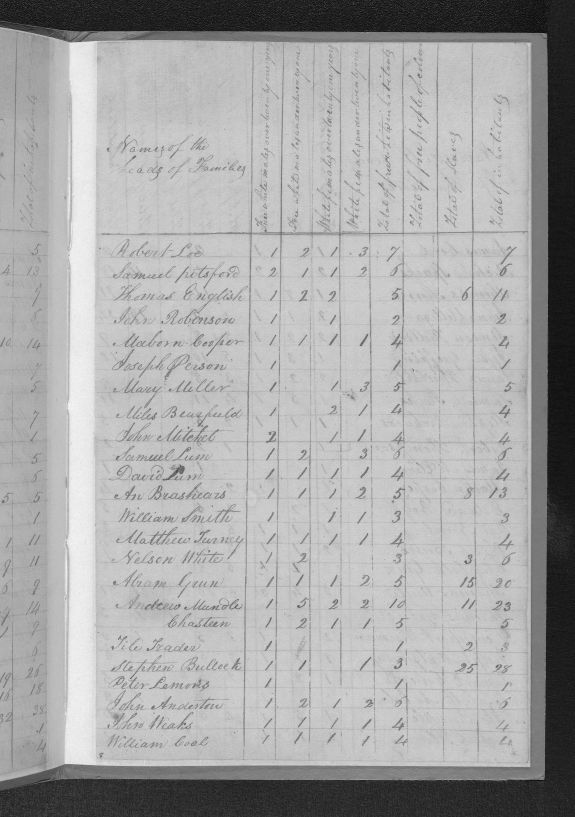 Names of the
heads of Families
Free white males over twenty one years
Free white males under twenty one
White females over twenty one years
White females under twenty one
Total of free white inhabitants
Total of free people of color
Total of Slaves
Total of inhabitants
Robert Loe 1 2 1 3 7 7
Samuel pitsford 2 1 1 2 6 6
Thomas English 1 2 2 5 6 11
John Robenson 1 1 2 2
Maborn Cooper 1 1 1 1 4 4
Joseph Person 1 1 1
Mary Miller 1 1 3 5 5
Miles 1 2 1 4 4
John Mitchel 2 1 1 4 4
Samuel Lum 1 2 3 6 6
David Lum 1 1 1 1 4 4
An Brashears 1 1 1 2 5 8 13
William Smith 1 1 1 3 3
Matthew Turney 1 1 1 1 4 4
Nelson White 1 2 3 3 6
Abram Grun 1 1 1 2 5 15 20
Andrew Mundle 1 5 2 2 10 11 23
Chasteen 1 2 1 1 5 5
Tile Trader 1 1 2 3
Stephen Bullock 1 1 1 3 25 28
Peter Lemons 1 1 1
John Anderton 1 2 1 2 6 6
John Weaks 1 1 1 1 4 4
William Cool 1 1 1 1 4 4